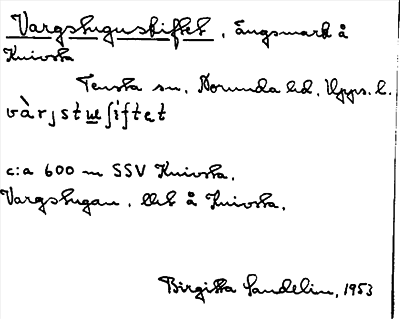 Vargstuguskiftet, ängsmark å
Knivsta
Tensta sn, Norunda hd, Upps. l.
c:a 600 m SSV Knivsta.
Vargstugan, å Knivsta.
Birgitta Sandelin, 1953